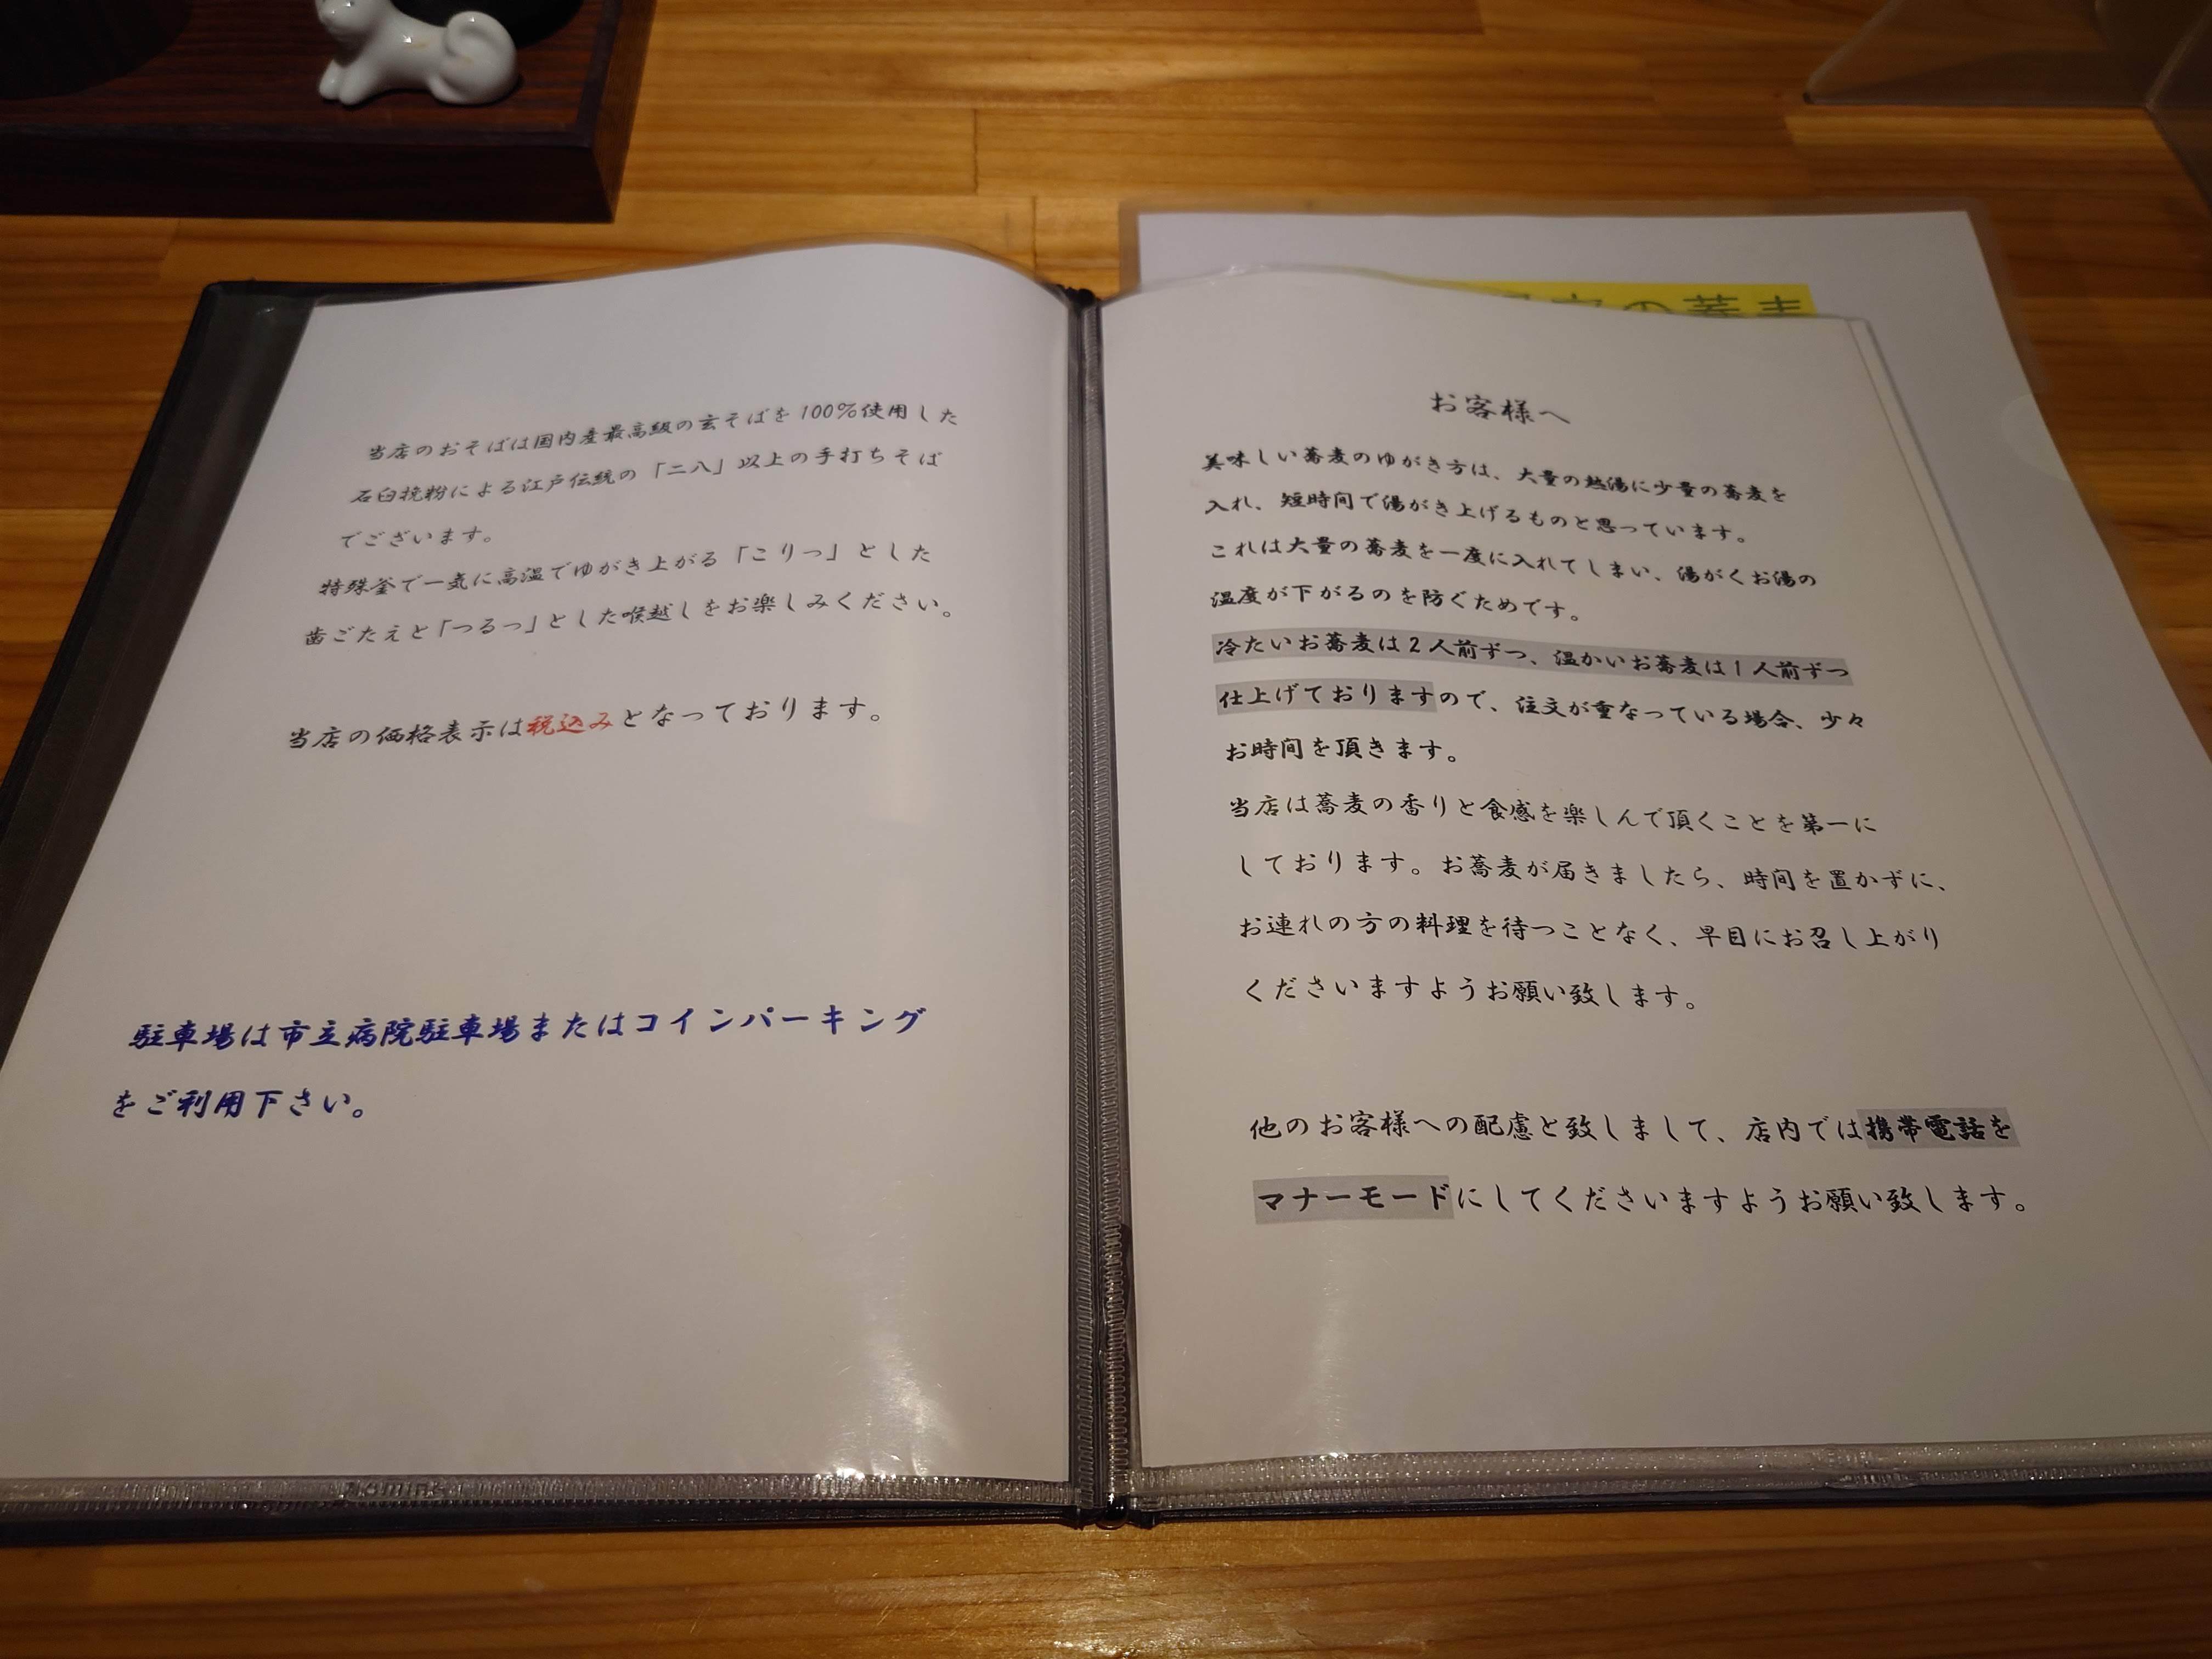 当店のおそばは国内産最高級の玄そばを100%使用した
石臼挽粉による江戸伝統の「二八」以上の手打ちそば
でございます。
特殊釜で一気に高温でゆがき上がる「こりっ」とした
歯ごたえと「つるっ」とした喉越しをお楽しみください。
当店の価格表示は税込みとなっております。
駐車場は市立病院駐車場またはコインパーキング
をご利用下さい。
の蕎麦
お客様へ
美味しい蕎麦のゆがき方は、大量の熱湯に少量の蕎麦を
入れ、短時間で湯がき上げるものと思っています。
これは大量の蕎麦を一度に入れてしまい、湯がくお湯の
温度が下がるのを防ぐためです。
冷たいお蕎麦は2人前ずつ、温かいお蕎麦は1人前ずつ
仕上げておりますので、注文が重なっている場合、少々
お時間を頂きます。
当店は蕎麦の香りと食感を楽しんで頂くことを第一に
しております。お蕎麦が届きましたら、時間を置かずに、
お連れの方の料理を待つことなく、早目にお召し上がり
くださいますようお願い致します。
他のお客様への配慮と致しまして、店内では携帯電話を
マナーモードにしてくださいますようお願い致します。